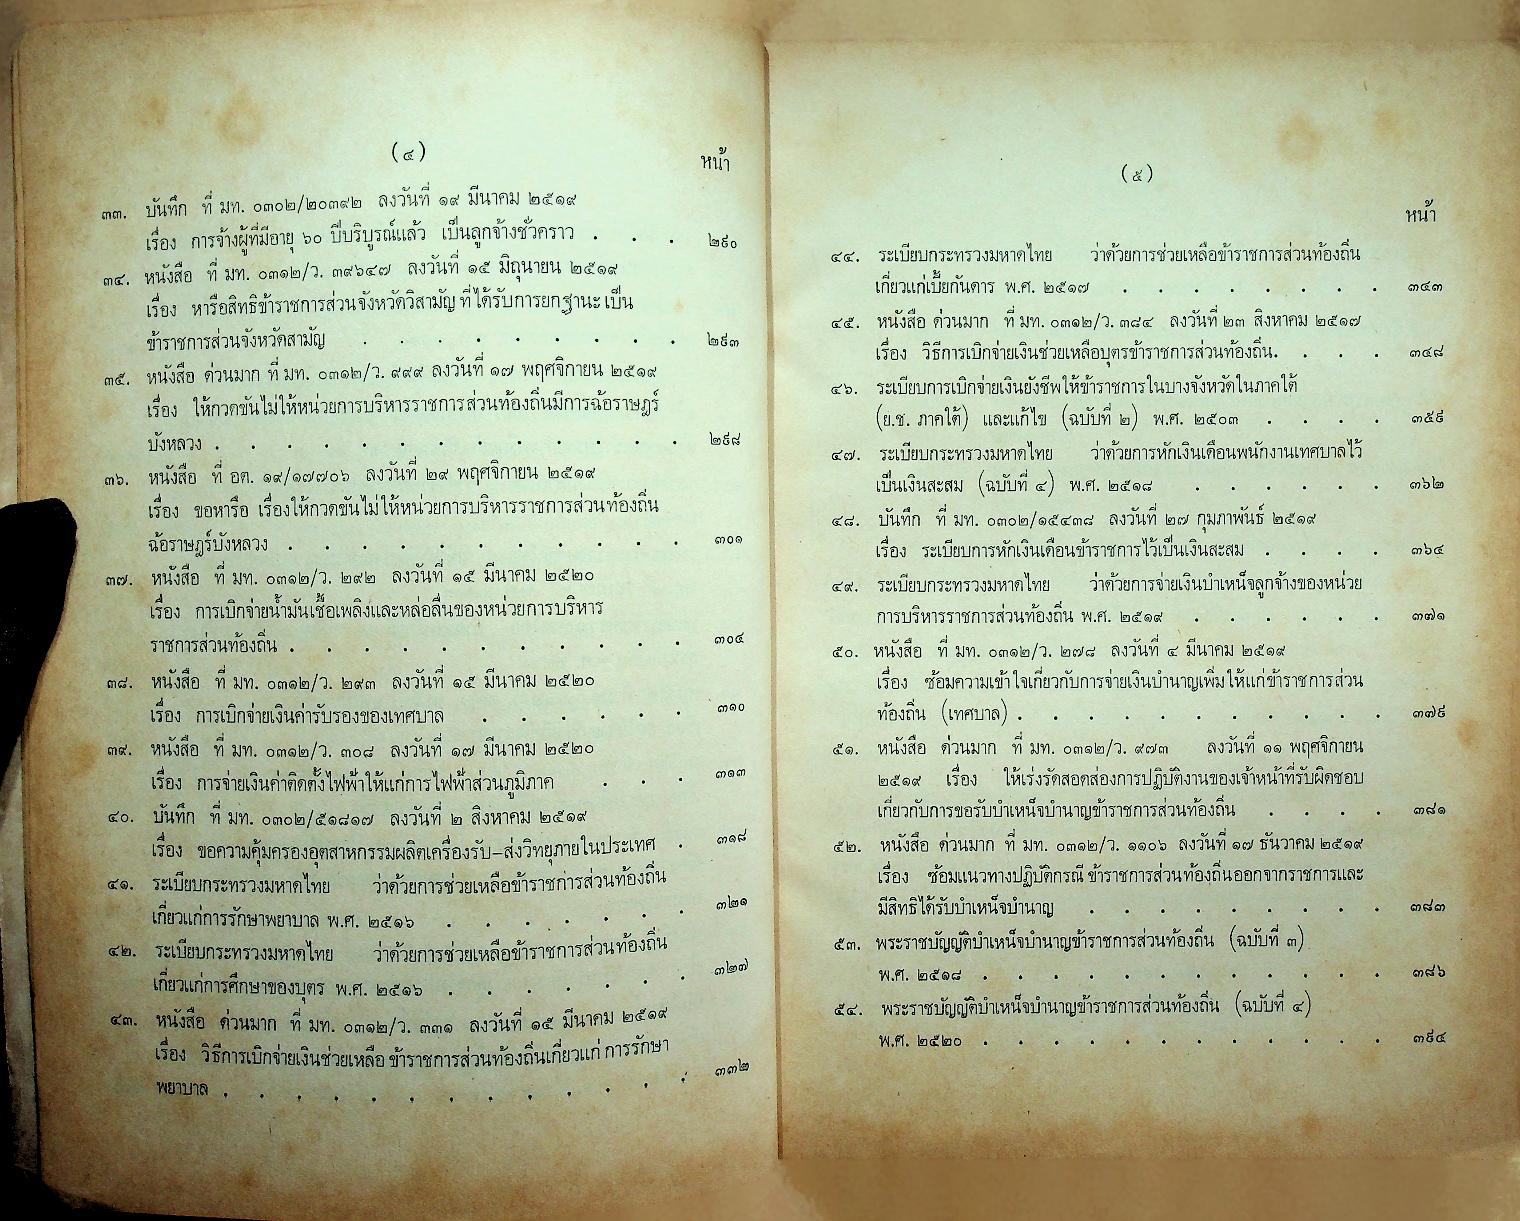 (๔)
หน้า
๓๓. บันทึก ที่ มท. ๐๓๐๒/๒๐๓๙๒ ลงวันที่ ๑๙ มีนาคม ๒๕๑๙
เรื่อง การจ้างผู้ที่มีอายุ ๖๐ ปีบริบูรณ์แล้ว เป็นลูกจ้างชั่วคราว . . . ๒๙๐
๓๔. หนังสือ ที่ มท. ๐๓๑๒/ว. ๓๙๖๔๗ ลงวันที่ ๑๕ มิถุนายน ๒๕๑๙
เรื่อง หารือสิทธิข้าราชการส่วนจังหวัดวิสามัญ ที่ได้รับการยกฐานะ เป็น
ข้าราชการส่วนจังหวัดสามัญ . . . . . . . . . ๒๙๓
๓๕. หนังสือ ด่วนมาก ที่ มท. ๐๓๑๒/ว. ๙๙๙ ลงวันที่ ๑๗ พฤศจิกายน ๒๕๑๙
เรื่อง ให้กวดขันไม่ให้หน่วยการบริหารราชการส่วนท้องถิ่นมีการฉ้อราษฎร์
บังหลวง . . . . . . . . . . . . . ๒๙๘
๓๖. หนังสือ ที่ อต. ๑๙/๑๗๗๐๖ ลงวันที่ ๒๙ พฤศจิกายน ๒๕๑๙
เรื่อง ขอหารือ เรื่องให้กวดขันไม่ให้หน่วยการบริหารราชการส่วนท้องถิ่น
ฉ้อราษฎร์บังหลวง . . . . . . . . . . . ๓๐๑
๓๗. หนังสือ ที่ มท. ๐๓๑๒/ว. ๒๙๒ ลงวันที่ ๑๕ มีนาคม ๒๕๒๐
เรื่อง การเบิกจ่ายน้ำมันเชื้อเพลิงและหล่อลื่นของหน่วยการบริหาร
ราชการส่วนท้องถิ่น . . . . . . . . . . . ๓๐๔
๓๘. หนังสือ ที่ มท. ๐๓๑๒/ว. ๒๙๓ ลงวันที่ ๑๕ มีนาคม ๒๕๒๐
เรื่อง การเบิกจ่ายเงินค่ารับรองของเทศบาล . . . . . . ๓๑๐
๓๙. หนังสือ ที่ มท. ๐๓๑๒/ว. ๓๐๘ ลงวันที่ ๑๗ มีนาคม ๒๕๒๐
เรื่อง การจ่ายเงินค่าติดตั้งไฟฟ้าให้แก่การไฟฟ้าส่วนภูมิภาค . . . ๓๑๓
๔๐. บันทึก ที่ มท. ๐๓๐๒/๕๑๘๑๗ ลงวันที่ ๒ สิงหาคม ๒๕๑๙
เรื่อง ขอความคุ้มครองอุตสาหกรรมผลิตเครื่องรับ–ส่งวิทยุภายในประเทศ . ๓๑๘
๔๑. ระเบียบกระทรวงมหาดไทย ว่าด้วยการช่วยเหลือข้าราชการส่วนท้องถิ่น
เกี่ยวแก่การรักษาพยาบาล พ.ศ. ๒๕๑๖ . . . . . . . ๓๒๑
๔๒. ระเบียบกระทรวงมหาดไทย ว่าด้วยการช่วยเหลือข้าราชการส่วนท้องถิ่น
เกี่ยวแก่การศึกษาของบุตร พ.ศ. ๒๕๑๖ . . . . . . . ๓๒๗
๔๓. หนังสือ ด่วนมาก ที่ มท. ๐๓๑๒/ว. ๓๓๑ ลงวันที่ ๑๕ มีนาคม ๒๕๑๙
เรื่อง วิธีการเบิกจ่ายเงินช่วยเหลือ ข้าราชการส่วนท้องถิ่นเกี่ยวแก่ การรักษา
พยาบาล . . . . . . . . . . . . . ๓๓๒
(๕)
หน้า
๔๔. ระเบียบกระทรวงมหาดไทย ว่าด้วยการช่วยเหลือข้าราชการส่วนท้องถิ่น
เกี่ยวแก่เบี้ยกันดาร พ.ศ. ๒๕๑๗ . . . . . . . . ๓๔๓
๔๕. หนังสือ ด่วนมาก ที่ มท. ๐๓๑๒/ว. ๓๘๔ ลงวันที่ ๒๓ สิงหาคม ๒๕๑๗
เรื่อง วิธีการเบิกจ่ายเงินช่วยเหลือบุตรข้าราชการส่วนท้องถิ่น. . . . ๓๔๘
๔๖. ระเบียบการเบิกจ่ายเงินยังชีพให้ข้าราชการในบางจังหวัดในภาคใต้
(ย.ช. ภาคใต้) และแก้ไข (ฉบับที่ ๒) พ.ศ. ๒๕๐๓ . . . . ๓๕๙
๔๗. ระเบียบกระทรวงมหาดไทย ว่าด้วยการหักเงินเดือนพนักงานเทศบาลไว้
เป็นเงินสะสม (ฉบับที่ ๔) พ.ศ. ๒๕๑๘ . . . . . . ๓๖๒
๔๘. บันทึก ที่ มท. ๐๓๐๒/๑๕๔๓๘ ลงวันที่ ๒๗ กุมภาพันธ์ ๒๕๑๙
เรื่อง ระเบียบการหักเงินเดือนข้าราชการไว้เป็นเงินสะสม . . . . ๓๖๔
๔๙. ระเบียบกระทรวงมหาดไทย ว่าด้วยการจ่ายเงินบำเหน็จลูกจ้างของหน่วย
การบริหารราชการส่วนท้องถิ่น พ.ศ. ๒๕๑๙ . . . . . . ๓๗๑
๕๐. หนังสือ ที่ มท. ๐๓๑๒/ว. ๒๗๘ ลงวันที่ ๔ มีนาคม ๒๕๑๙
เรื่อง ซ้อมความเข้าใจเกี่ยวกับการจ่ายเงินบำนาญเพิ่มให้แก่ข้าราชการส่วน
ท้องถิ่น (เทศบาล) . . . . . . . . . . . ๓๗๙
๕๑. หนังสือ ด่วนมาก ที่ มท. ๐๓๑๒/ว. ๙๗๓ ลงวันที่ ๑๑ พฤศจิกายน
๒๕๑๙ เรื่อง ให้เร่งรัดสอดส่องการปฏิบัติงานของเจ้าหน้าที่รับผิดชอบ
เกี่ยวกับการขอรับบำเหน็จบำนาญข้าราชการส่วนท้องถิ่น . . . . ๓๘๑
๕๒. หนังสือ ด่วนมาก ที่ มท. ๐๓๑๒/ว. ๑๑๐๖ ลงวันที่ ๑๗ ธันวาคม ๒๕๑๙
เรื่อง ซ้อมแนวทางปฏิบัติกรณี ข้าราชการส่วนท้องถิ่นออกจากราชการและ
มีสิทธิได้รับบำเหน็จบำนาญ . . . . . . . . . ๓๘๓
๕๓. พระราชบัญญัติบำเหน็จบำนาญข้าราชการส่วนท้องถิ่น (ฉบับที่ ๓)
พ.ศ. ๒๕๑๘ . . . . . . . . . . . . ๓๘๖
๕๔. พระราชบัญญัติบำเหน็จบำนาญข้าราชการส่วนท้องถิ่น (ฉบับที่ ๔)
พ.ศ. ๒๕๒๐ . . . . . . . . . . . . ๓๙๔